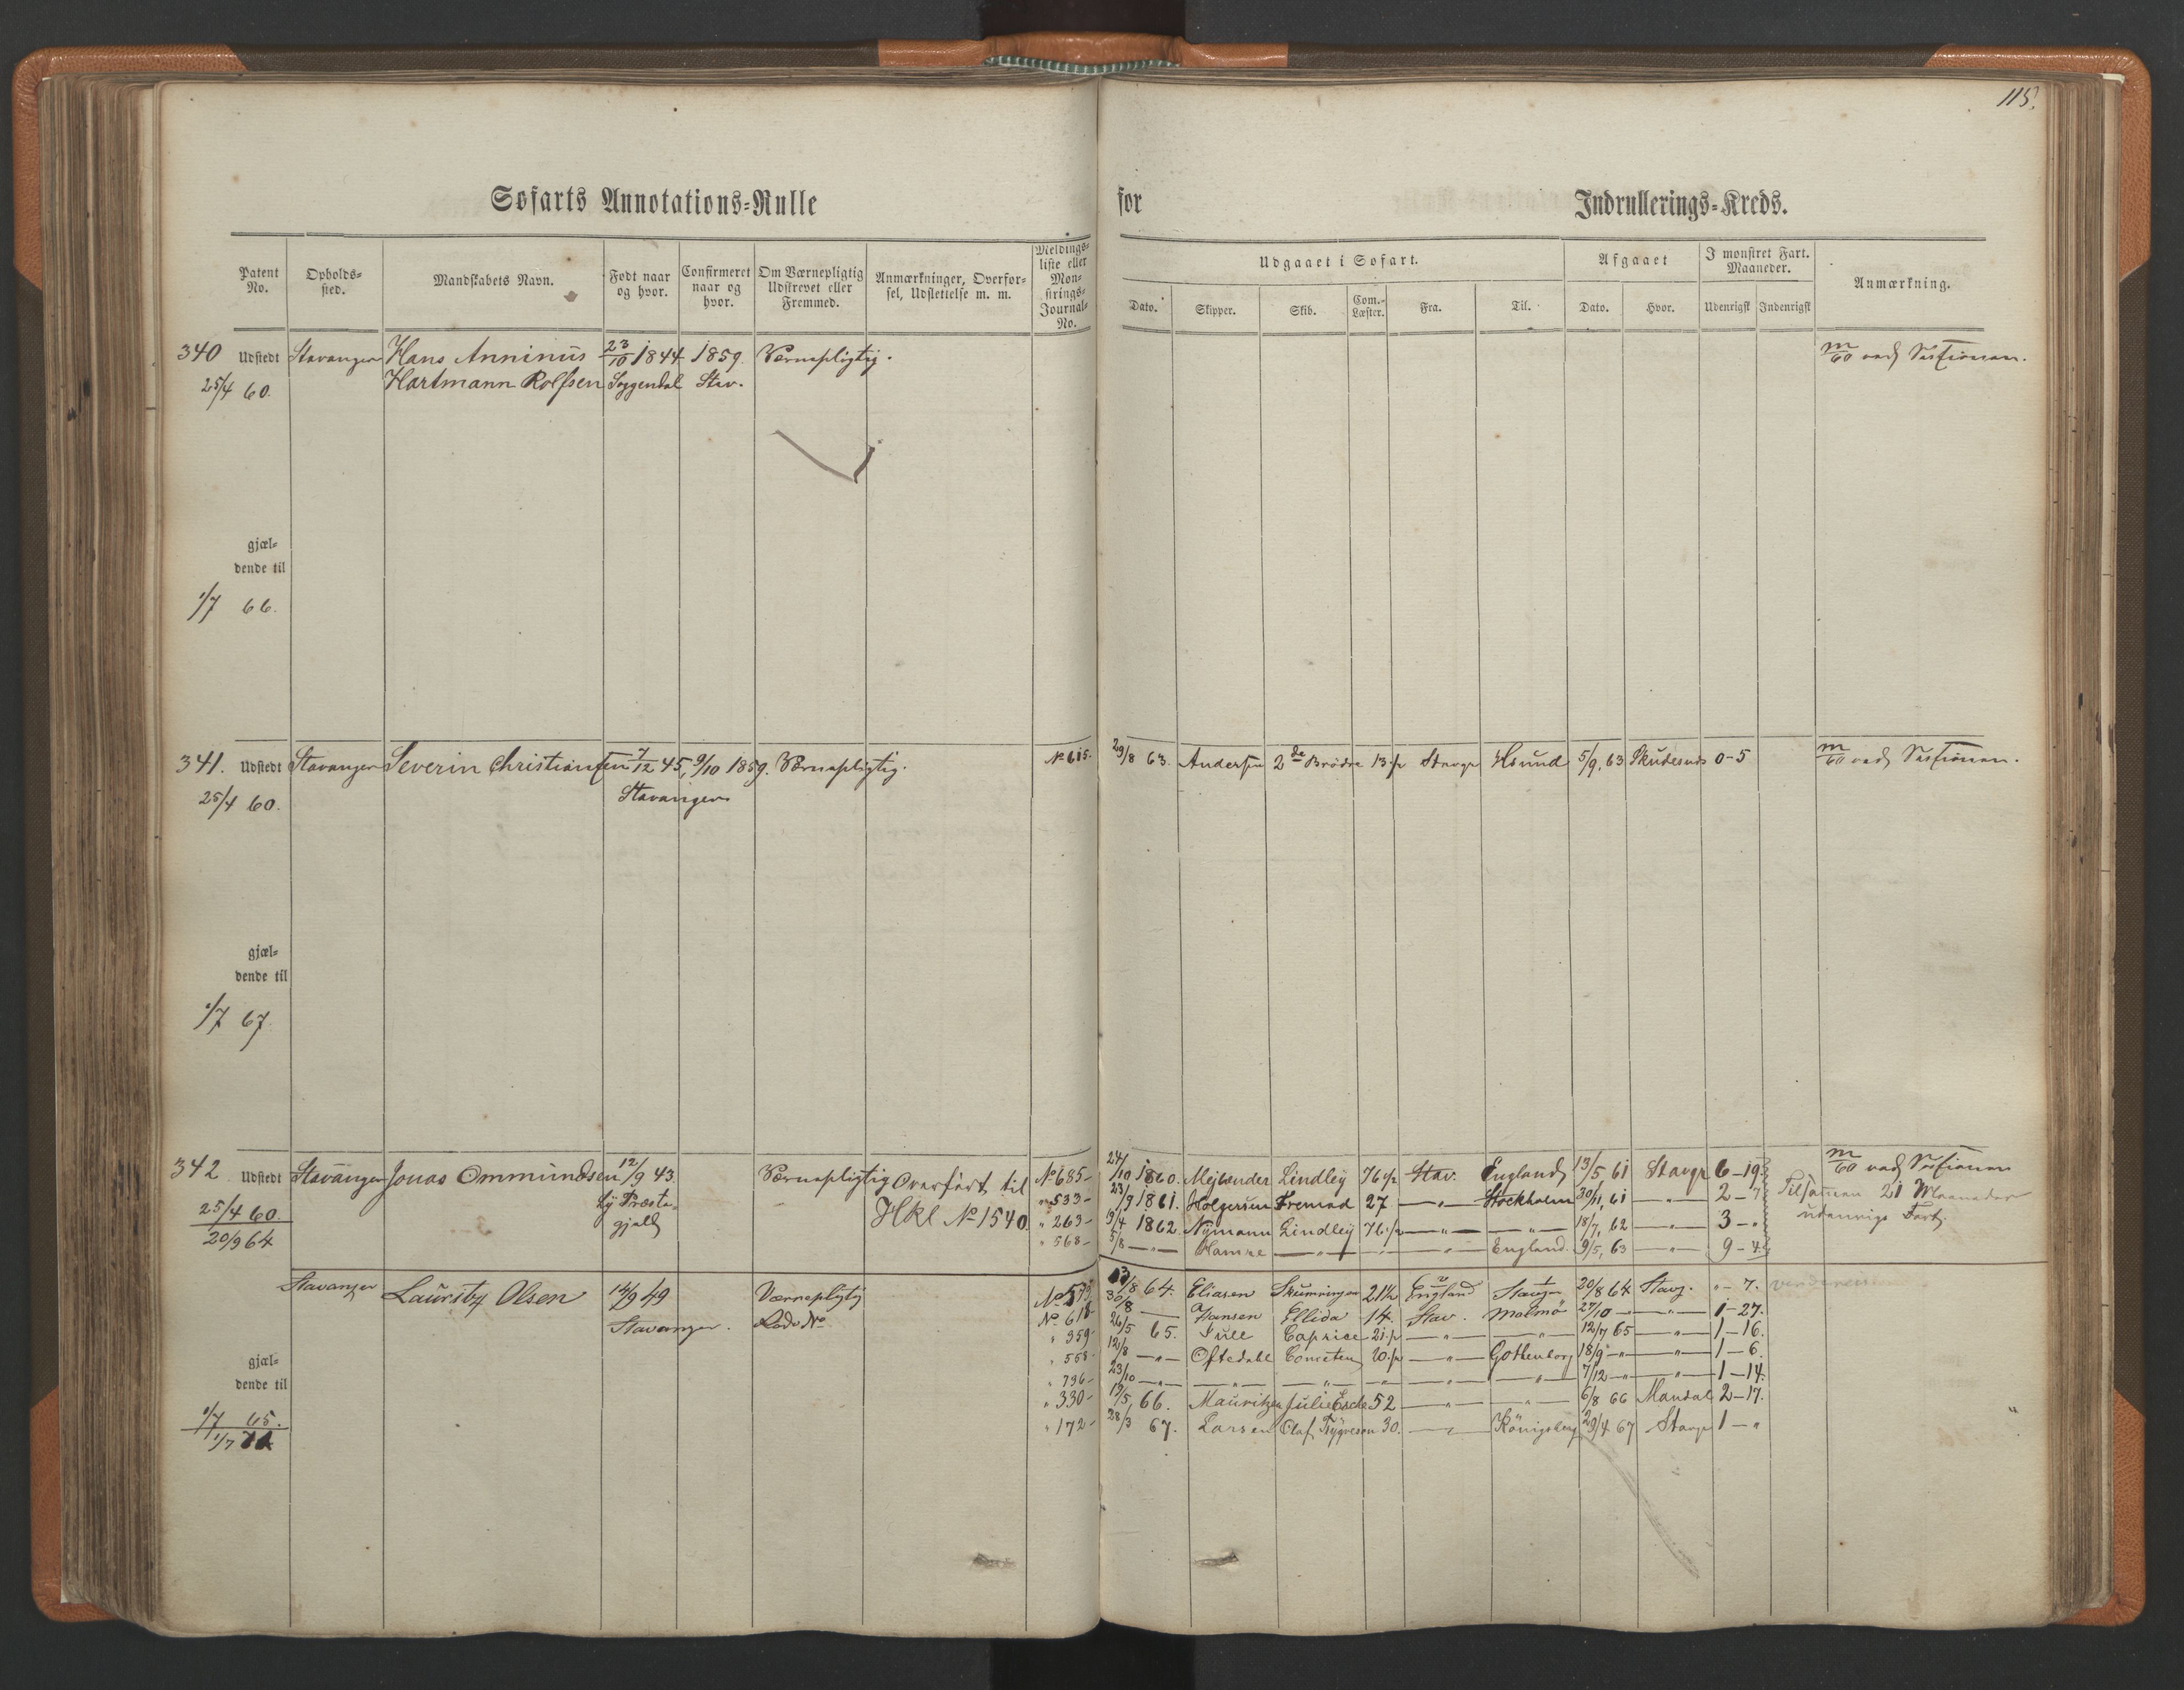 115.
Søfarts Annotations-Rulle for Indrullerings-Kreds.
Patent No.
Opholds-sted.
Mandskabets Navn.
Født naar og hvor.
Confirmeret naar og hvor.
Om Værnepligtig Udskrevet eller Fremmed.
Anmærkninger, Overfør-sel, Udslettelse m. m.
Meldings-liste eller Mon-strings-Journal-No.
Udgaaet i Søfart.
Dato. Skipper. Skib. Com.-Læster. Fra. Til.
Afgaaet
Dato. Hvor.
I mønstret Fart. Maaneder.
Udenrigsk Indenrigsk
Anmærkning.
340 Udstedt Stavanger Hans Anninius 23/10 1844 1859. Værnepligtig.
25/4 60. Hartmann Rolfsen Soggendal Stav.
gjæl-
dende til
1/7 66.
341. Udstedt Stavanger Severin Christiansen 7/12 45, 9/10 1859. Værnepligtig. No 615. 29/8 63. Andersen 2de Brødre 13 1/2 Stavgr Hsund 5/9, 63 Skudesnes 0-5
25/4 60. Stavanger
gjæl-
dende til
1/7 67.
342 Udstedt Stavanger Jonas Ommundsen 12/9 43. Værnepligtig Overført til No 685- 24/10 1860. Mejlænder Lindley 76 1/2 Stav. England 13/5 61 Stavgr 6-19
25/4 60. Ly Præste- Hkl No 1540 " 533- 23/9 1861. Holgersen Fremad 27 -"- Stockholm 30/11, 61 -"- 2-7 Tilsammen 21 Maaneder
20/9 64 gjæld " 263- 19/4 1862. Nymann Lindley 76 1/2 -"- -"- 18/7, 62 -"- 3-" udenrigs Fart.
" 568- 5/8 -"- Hamre -"- -"- -"- England. 9/5, 63 -"- 9-4
Stavanger Lauritz Olsen 14/9 49 Værnepligtig 64. Eliasen 21 1/2 England Stavgr 20/8 64 Stavg. "-7.
Stavanger. Lods No No 618- 30/8 -"- Hansen Ellida 14. Stav. Malmö 27/10 -"- -"- 1-27.
" 359- 26/5 65. Juell Caprice 21 1/2 -"- -"- 12/7 65 -"- 1-16.
gjæl- " 558- 12/8 -"- Oftedahl Cometen 20 1/2 -"- Gothenborg 18/9 -"- -"- 1-6.
dende til " 796- 23/10 -"- -"- -"- -"- -"- -"- 7/12 -"- -"- 1-14.
1/7 65. " 330- 19/5, 66. Mauritzen Julie Esche 52 -"- -"- 6/8 66 Mandal 2-17.
1/7 71 " 172- 28/3 67. Larsen Olaf Trygvesen 30. -"- Königsberg 29/4 67 Stavgr 1-"